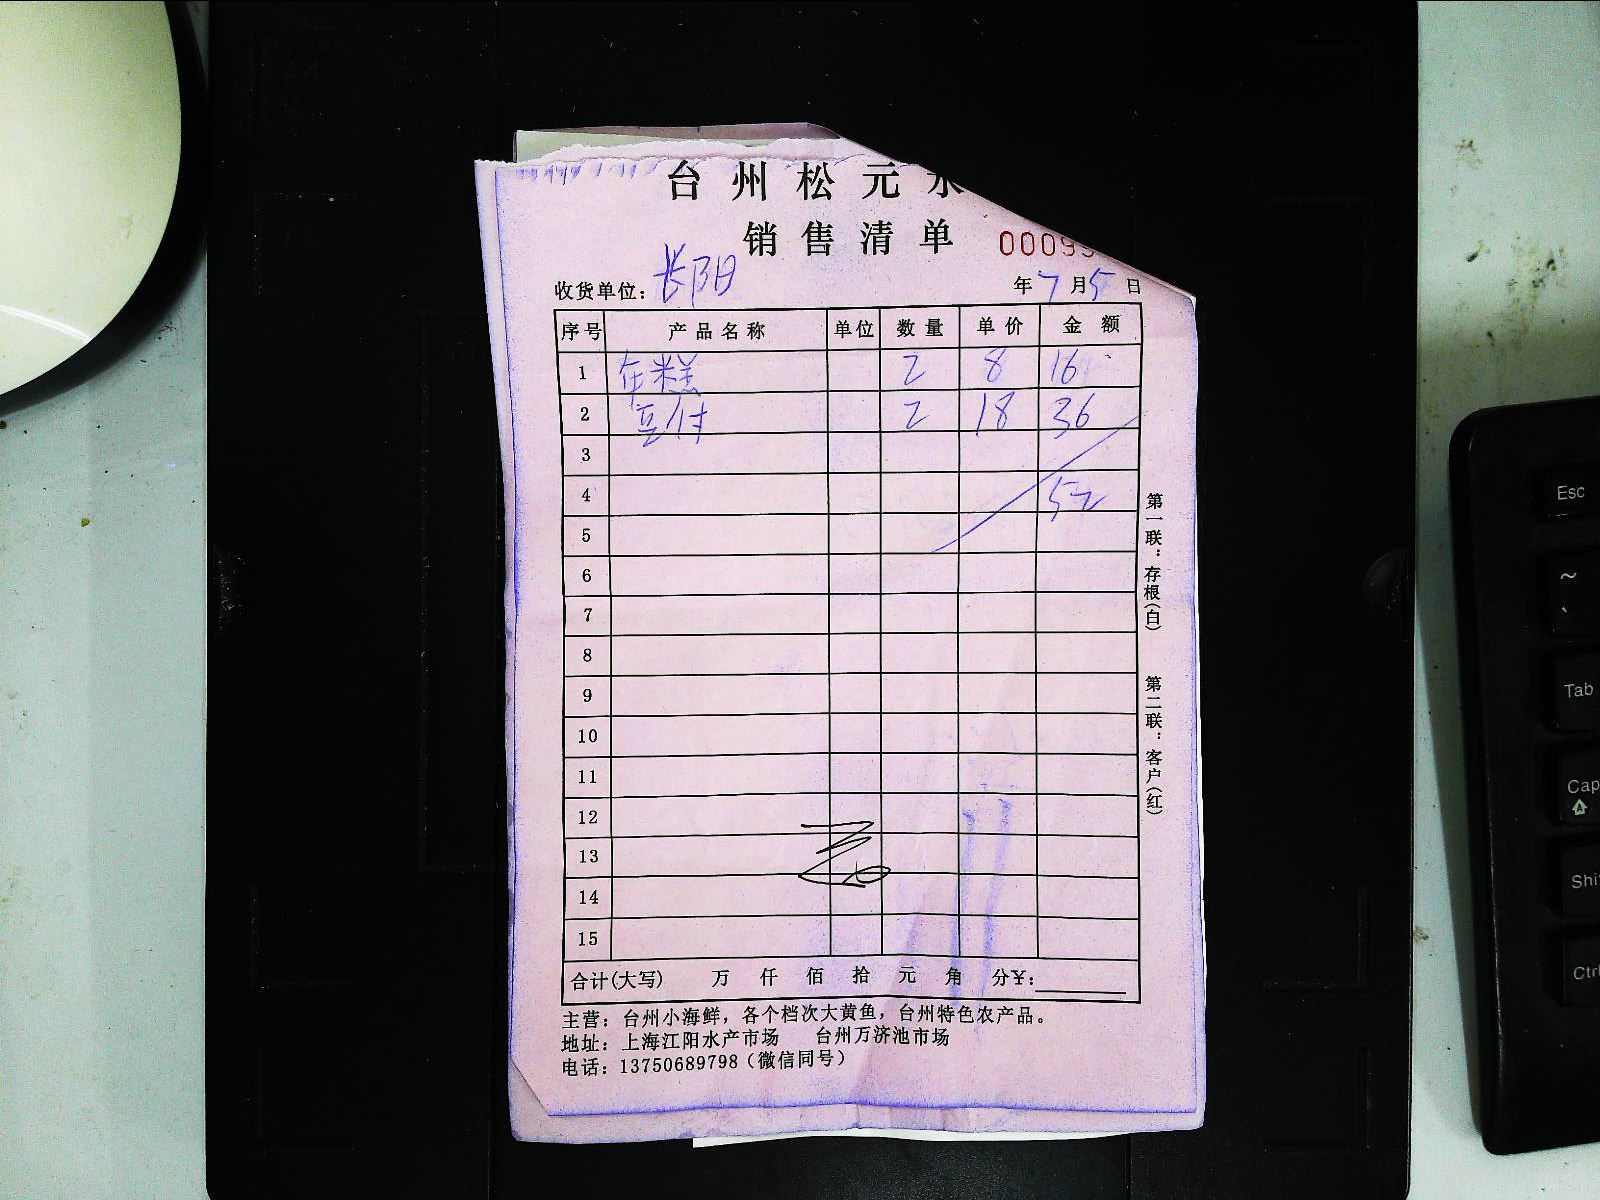 台州松元水
销售清单 00099
收货单位：长阳 年7月5日
序号 产品名称 单位 数量 单价 金额
1 年糕 2 8 16
2 豆付 2 18 36
3
4 52
5
6
7
8
9
10
11
12
13
14
15
合计(大写) 万 仟 佰 拾 元 角 分¥：
主营：台州小海鲜，各个档次大黄鱼，台州特色农产品。
地址：上海江阳水产市场 台州万济池市场
电话：13750689798（微信同号）
第一联：存根(白) 第二联：客户(红)
Esc
~
`
Tab
Cap
Shi
Ctrl